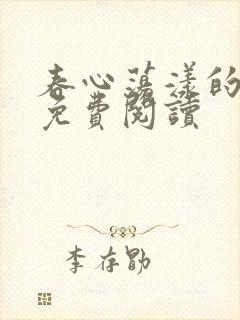 春心荡漾的
免費閱讀
李存勖